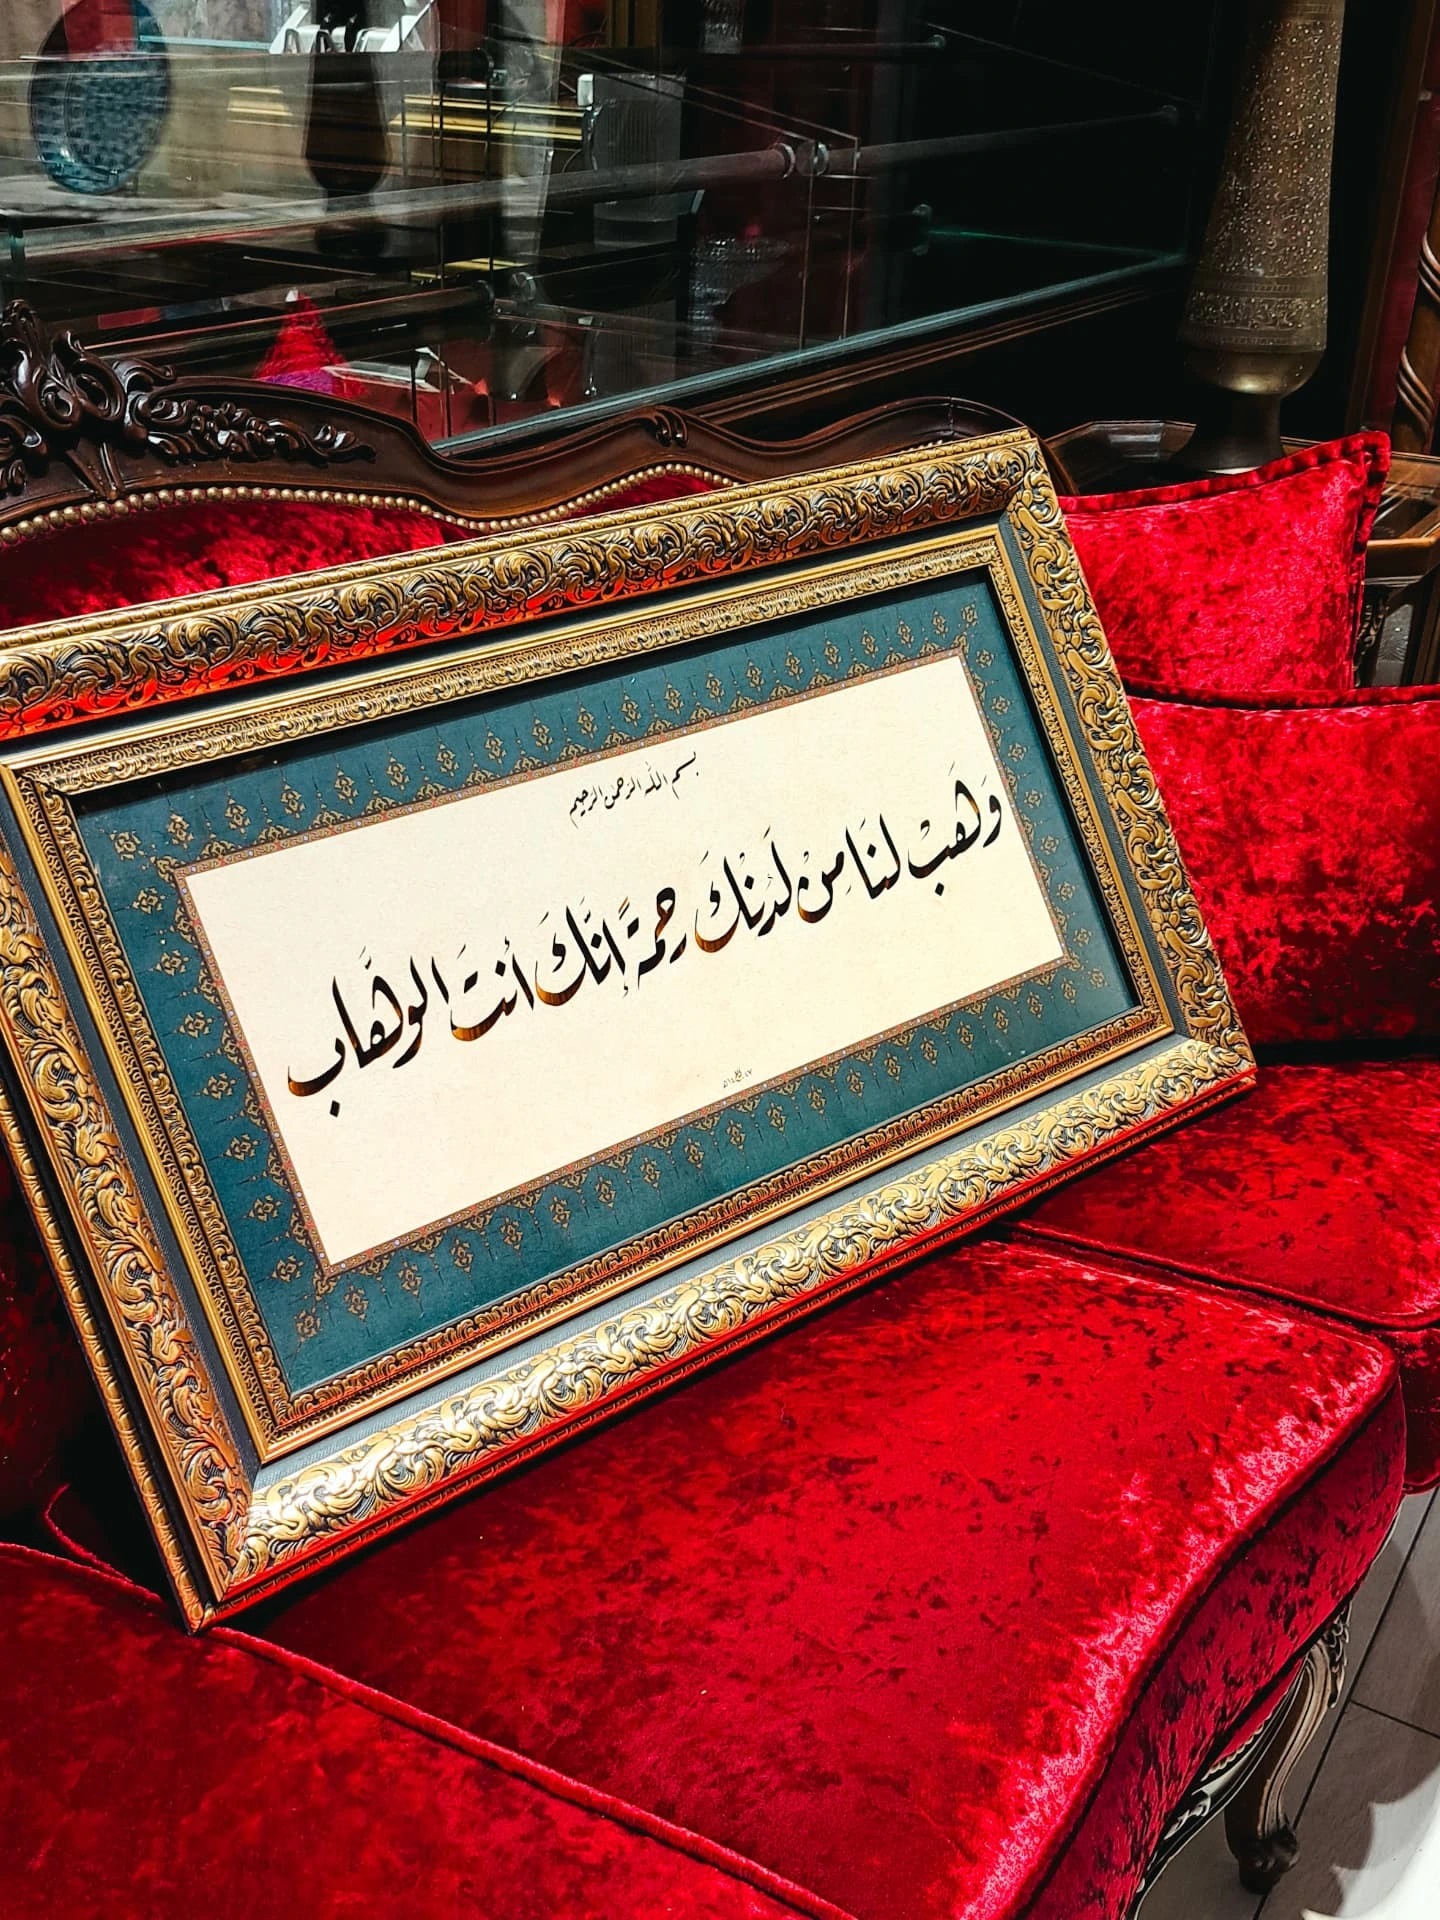 بسم الله الرحمن الرحيم
وَهَبْ لَنَا مِنْ لَدُنْكَ رَحمةً إِنَّكَ أَنتَ الوهَّاب